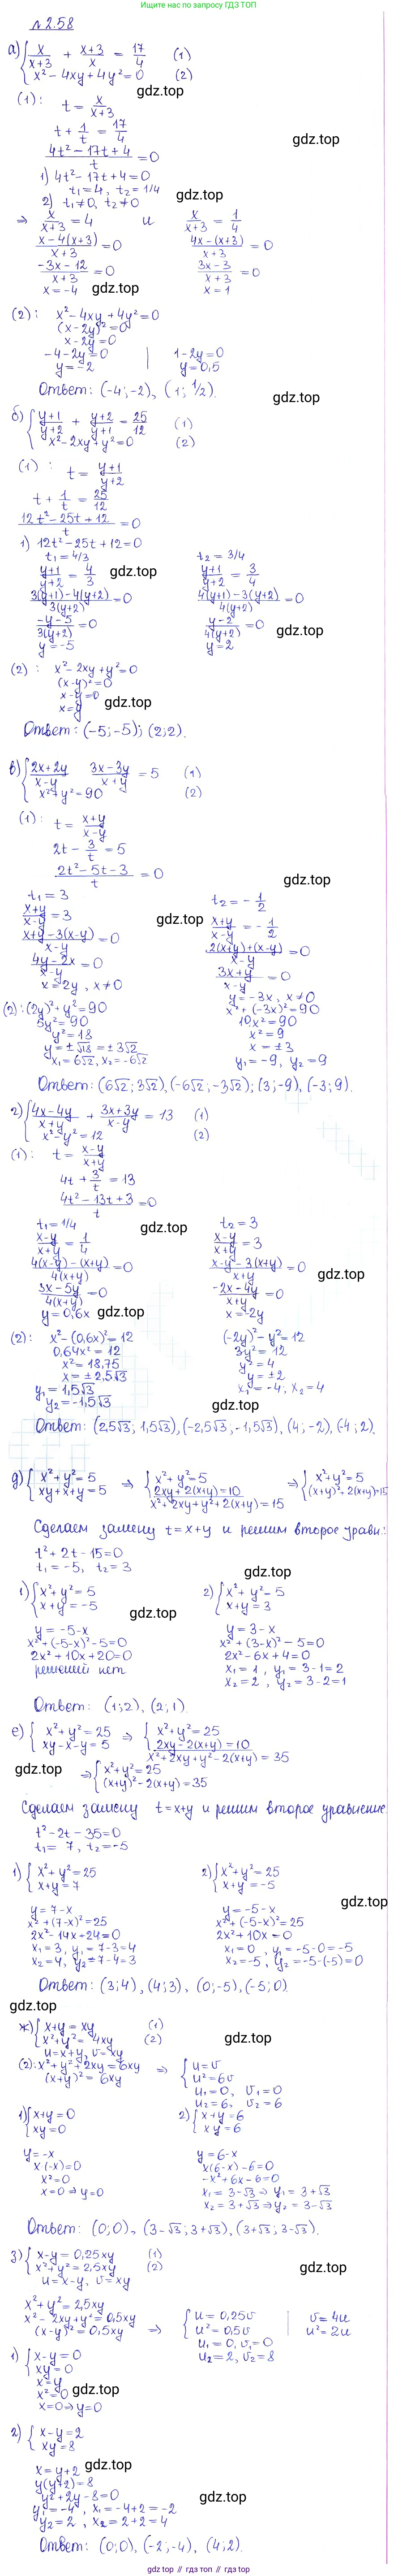 Ищите нас по запросу ГДЗ ТОП
№ 2.58
а) { x/(x+3) + (x+3)/x = 17/4 (1)
x² - 4xy + 4y² = 0 (2)
gdz.top
(1): t = x/(x+3)
t + 1/t = 17/4
gdz.top
(4t² - 17t + 4)/t = 0
1) 4t² - 17t + 4 = 0
t₁ = 4, t₂ = 1/4
gdz.top
2) t₁ ≠ 0, t₂ ≠ 0
⇒ x/(x+3) = 4 и x/(x+3) = 1/4
(x - 4(x+3))/(x+3) = 0 (4x - (x+3))/(x+3) = 0
(-3x - 12)/(x+3) = 0 (3x - 3)/(x+3) = 0
x = -4 gdz.top x = 1
(2): x² - 4xy + 4y² = 0
(x - 2y)² = 0
x - 2y = 0
-4 - 2y = 0 | 1 - 2y = 0
y = -2 y = 0,5
Ответ: (-4; -2), (1; 1/2).
gdz.top
б) { (y+1)/(y+2) + (y+2)/(y+1) = 25/12 (1)
x² - 2xy + y² = 0 (2)
(1): t = (y+1)/(y+2)
t + 1/t = 25/12
(12t² - 25t + 12)/t = 0
1) 12t² - 25t + 12 = 0
t₁ = 4/3 t₂ = 3/4
(y+1)/(y+2) = 4/3 gdz.top (y+1)/(y+2) = 3/4
(3(y+1) - 4(y+2))/(3(y+2)) = 0 (4(y+1) - 3(y+2))/(4(y+2)) = 0
(-y - 5)/(3(y+2)) = 0 (y - 2)/(4(y+2)) = 0 gdz.top
y = -5 y = 2
(2): x² - 2xy + y² = 0
(x - y)² = 0
x - y = 0
x = y gdz.top
Ответ: (-5; -5); (2; 2).
в) { (2x+2y)/(x-y) (3x-3y)/(x+y) = 5 (1)
x² + y² = 90 (2)
(1): t = (x+y)/(x-y)
2t - 3/t = 5
(2t² - 5t - 3)/t = 0
gdz.top
t₁ = 3 t₂ = -1/2
(x+y)/(x-y) = 3 gdz.top (x+y)/(x-y) = -1/2
(x+y - 3(x-y))/(x-y) = 0 (2(x+y) + (x-y))/(x-y) = 0
(4y - 2x)/(x-y) = 0 (3x+y)/(x-y) = 0
x = 2y, x ≠ 0 y = -3x, x ≠ 0
(2): (2y)² + y² = 90 x² + (-3x)² = 90
5y² = 90 10x² = 90
y² = 18 x² = 9
y = ±√18 = ±3√2 x = ±3
x₁ = 6√2, x₂ = -6√2 y₁ = -9, y₂ = 9
Ответ: (6√2; 3√2), (-6√2; -3√2); (3; -9), (-3; 9).
г) { (4x-4y)/(x+y) + (3x+3y)/(x-y) = 13 (1)
x² - y² = 12 (2)
(1): t = (x-y)/(x+y)
4t + 3/t = 13
(4t² - 13t + 3)/t = 0
t₁ = 1/4 gdz.top t₂ = 3
(x-y)/(x+y) = 1/4 (x-y)/(x+y) = 3
(4(x-y) - (x+y))/(4(x+y)) = 0 (x-y - 3(x+y))/(x+y) = 0
gdz.top
(3x - 5y)/(4(x+y)) = 0 (-2x - 4y)/(x+y) = 0
y = 0,6x gdz.top x = -2y
(2): x² - (0,6x)² = 12 (-2y)² - y² = 12
0,64x² = 12 3y² = 12
x² = 18,75 y² = 4
x = ±2,5√3 y = ±2
y₁ = 1,5√3 x₁ = -4, x₂ = 4
y₂ = -1,5√3 gdz.top
Ответ: (2,5√3; 1,5√3), (-2,5√3; -1,5√3), (4; -2), (-4; 2).
д) { x² + y² = 5 ⇒ { x² + y² = 5 ⇒ { x² + y² = 5
xy + x + y = 5 2xy + 2(x+y) = 10 (x+y)² + 2(x+y) = 15
x² + 2xy + y² + 2(x+y) = 15
Сделаем замену t = x + y и решим второе уравн.:
t² + 2t - 15 = 0
t₁ = -5, t₂ = 3
gdz.top
1) { x² + y² = 5 2) { x² + y² = 5
x + y = -5 x + y = 3
gdz.top
y = -5 - x y = 3 - x
x² + (-5-x)² - 5 = 0 x² + (3-x)² - 5 = 0
2x² + 10x + 20 = 0 2x² - 6x + 4 = 0
решений нет x₁ = 1, y₁ = 3 - 1 = 2
x₂ = 2, y₂ = 3 - 2 = 1
Ответ: (1; 2), (2; 1).
е) { x² + y² = 25 ⇒ { x² + y² = 25
xy - x - y = 5 2xy - 2(x+y) = 10
gdz.top x² + 2xy + y² - 2(x+y) = 35
⇒ { x² + y² = 25
(x+y)² - 2(x+y) = 35
Сделаем замену t = x + y и решим второе уравнение
t² - 2t - 35 = 0
t₁ = 7, t₂ = -5
1) { x² + y² = 25 2) { x² + y² = 25
x + y = 7 x + y = -5
gdz.top
y = 7 - x y = -5 - x
x² + (7-x)² = 25 x² + (-5-x)² = 25
2x² - 14x + 24 = 0 2x² + 10x = 0
x₁ = 3, y₁ = 7 - 3 = 4 x₁ = 0, y₁ = -5 - 0 = -5
x₂ = 4, y₂ = 7 - 4 = 3 x₂ = -5, y₂ = -5 - (-5) = 0
Ответ: (3; 4), (4; 3), (0; -5), (-5; 0).
gdz.top
ж) { x + y = xy (1)
x² + y² = 4xy (2) gdz.top
u = x + y, v = xy
(2): x² + y² + 2xy = 6xy ⇒ { u = v
(x+y)² = 6xy u² = 6v
u₁ = 0, v₁ = 0
u₂ = 6, v₂ = 6
1) { x + y = 0 2) { x + y = 6
xy = 0 xy = 6
y = -x y = 6 - x
x(-x) = 0 x(6-x) - 6 = 0
x² = 0 -x² + 6x - 6 = 0
x = 0 ⇒ y = 0 x₁ = 3 - √3 ⇒ y₁ = 3 + √3
x₂ = 3 + √3 ⇒ y₂ = 3 - √3
Ответ: (0; 0), (3 - √3; 3 + √3), (3 + √3; 3 - √3).
з) { x - y = 0,25xy (1)
x² + y² = 2,5xy (2) gdz.top
u = x - y, v = xy
x² + y² = 2,5xy
x² - 2xy + y² = 0,5xy ⇒ { u = 0,25v | v = 4u
(x-y)² = 0,5xy u² = 0,5v | u² = 2u
u₁ = 0, v₁ = 0
u₂ = 2, v₂ = 8
1) { x - y = 0
xy = 0
x = y
x² = 0 gdz.top
x = 0 ⇒ y = 0
2) { x - y = 2
xy = 8
x = y + 2 gdz.top
y(y+2) = 8
y² + 2y - 8 = 0
y₁ = -4, x₁ = -4 + 2 = -2 gdz.top
y₂ = 2, x₂ = 2 + 2 = 4
Ответ: (0; 0), (-2; -4), (4; 2).
gdz.top // гдз.топ // gdz.top